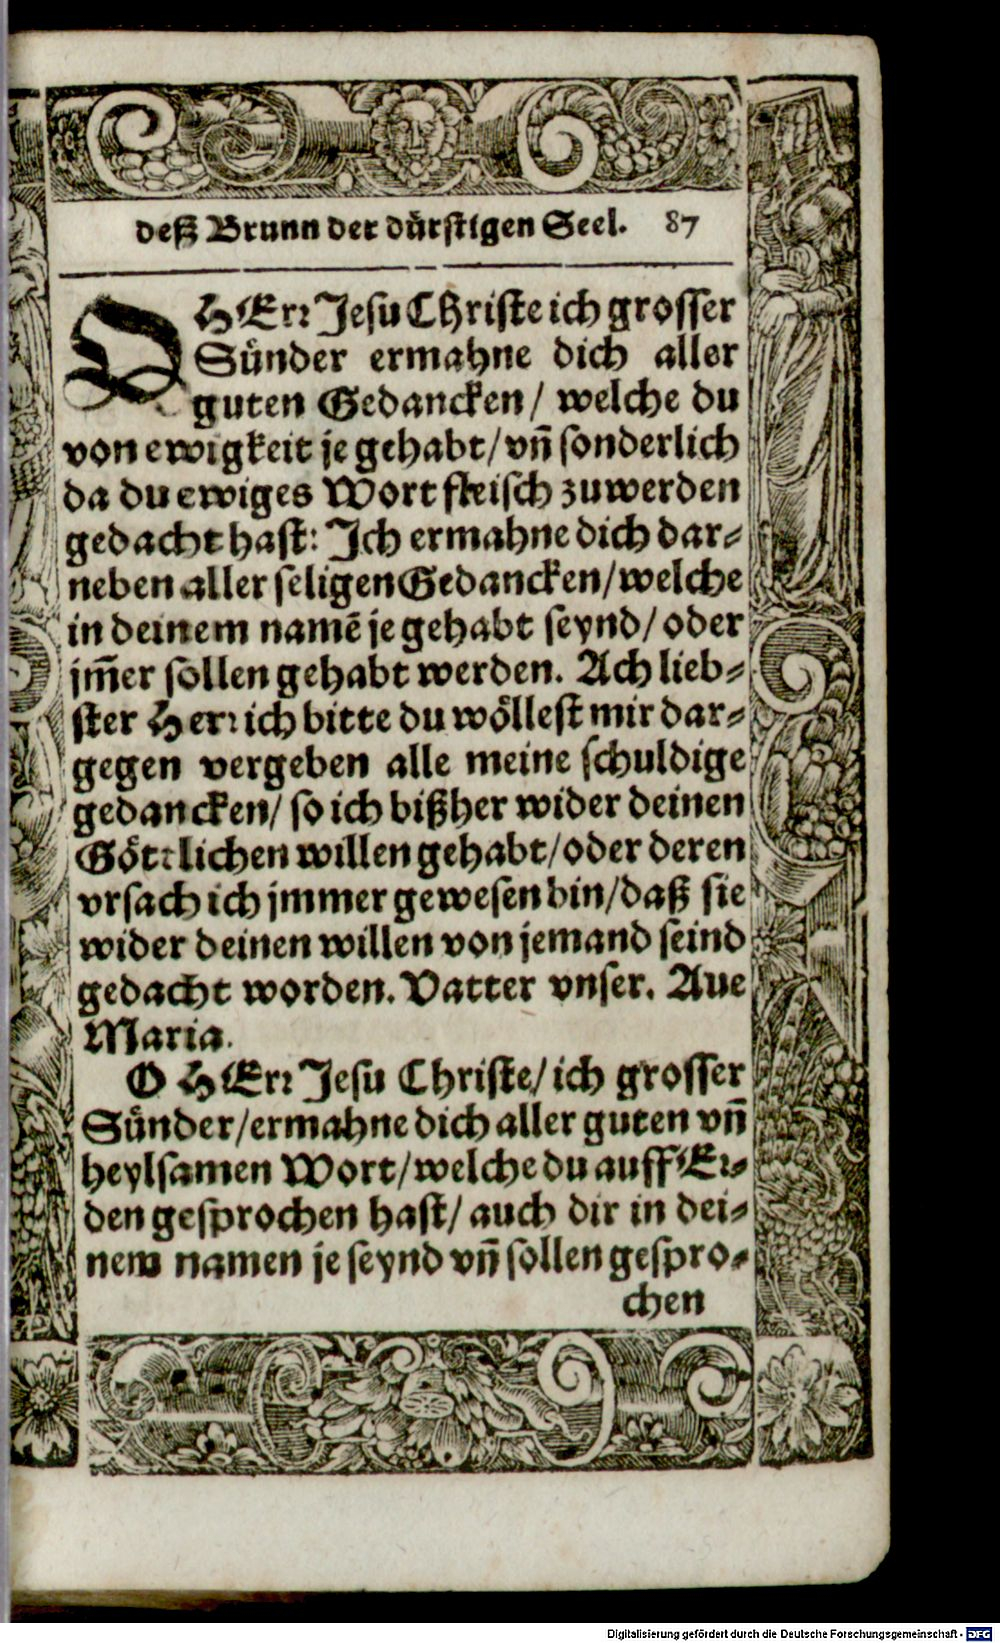 deß Brunn der dürstigen Seel. 87
O HErr Jesu Christe ich grosser
Sünder ermahne dich aller
guten Gedancken/ welche du
von ewigkeit je gehabt/ vñ sonderlich
da du ewiges Wort fleisch zuwerden
gedacht hast: Ich ermahne dich dar-
neben aller seligen Gedancken/ welche
in deinem namē je gehabt seynd/ oder
jm̄er sollen gehabt werden. Ach lieb-
ster Herr ich bitte du wöllest mir dar-
gegen vergeben alle meine schuldige
gedancken/ so ich bißher wider deinen
Göttlichen willen gehabt/ oder deren
vrsach ich jmmer gewesen bin/ daß sie
wider deinen willen von jemand seind
gedacht worden. Vatter vnser. Aue
Maria.
O HErr Jesu Christe/ ich grosser
Sünder/ ermahne dich aller guten vñ
heylsamen Wort/ welche du auff Er-
den gesprochen hast/ auch dir in dei-
nem namen je seynd vñ sollen gespro-
chen
Digitalisierung gefördert durch die Deutsche Forschungsgemeinschaft - DFG